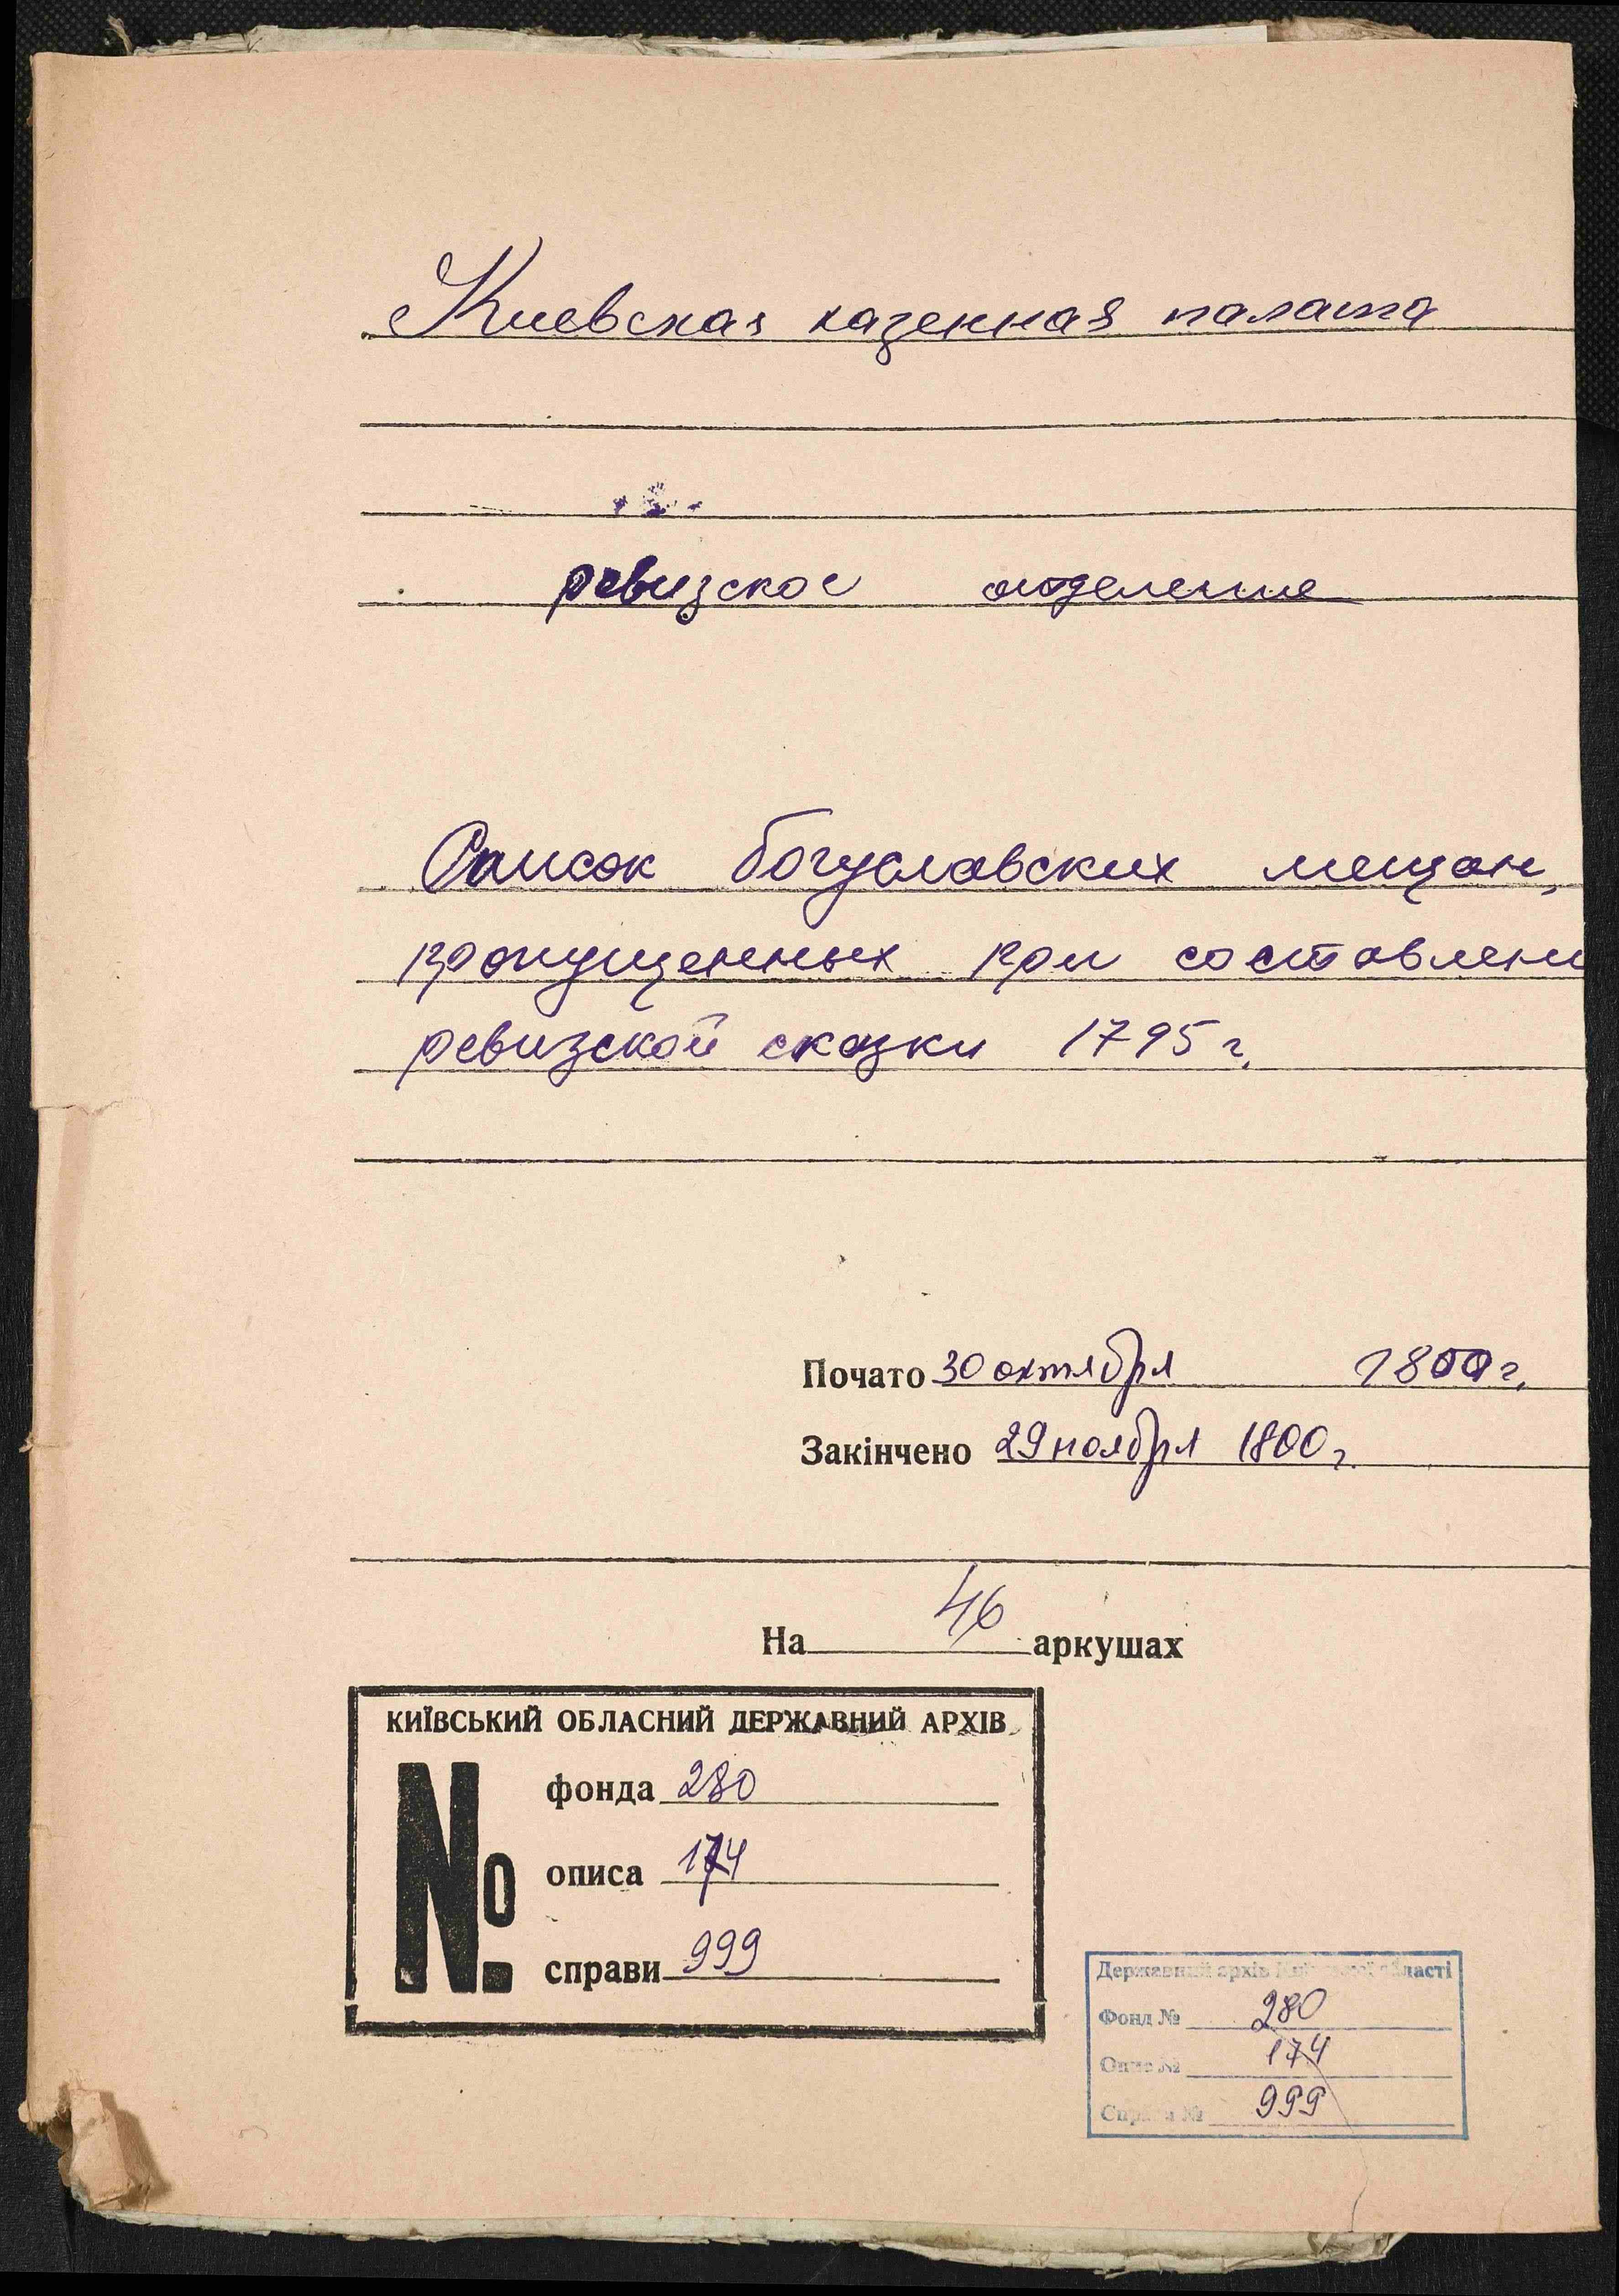 Киевская казенная палата
ревизское отделение
Список богуславских мещан,
пропущенных при составлени
ревизской сказки 1795 г.
Почато 30 октября 1800 г.
Закінчено 29 ноября 1800 г.
На 46 аркушах
КИЇВСЬКИЙ ОБЛАСНИЙ ДЕРЖАВНИЙ АРХІВ
№ фонда 280
описа 174
справи 999
Державний архів Київської області
Фонд № 280
Опис № 174
Справа № 999